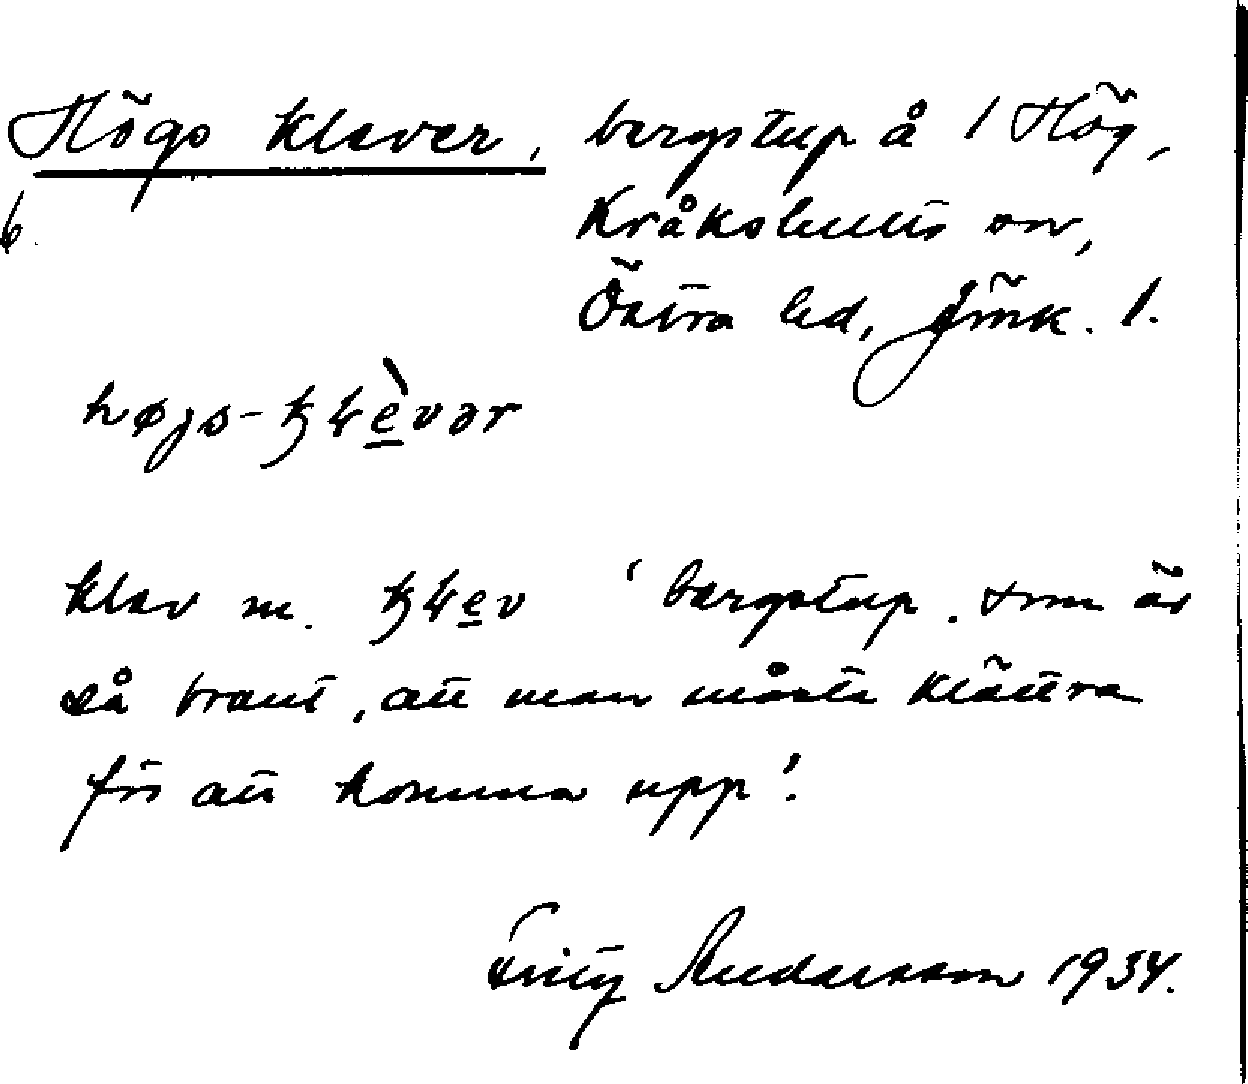 Högs klever, bergstup å 1 Hög,
6. Kråkshults sn,
Östra hd, Jönk. l.
høgs-kḷèvər
klev m. kḷev 'bergstup. som är
så brant, att man måste klättra
för att komma upp'.
Fritz Andersson 1934.